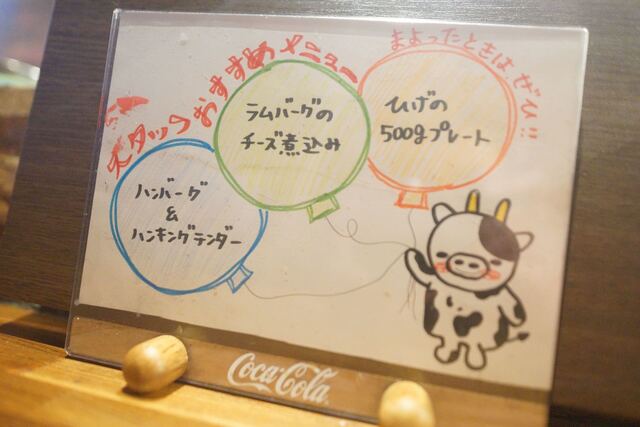 スタッフおすすめメニュー
まよったときは、ぜひ!!
ラムバーグの
チーズ煮込み
ひげの
500gプレート
ハンバーグ
&
ハンキングテンダー
Coca-Cola